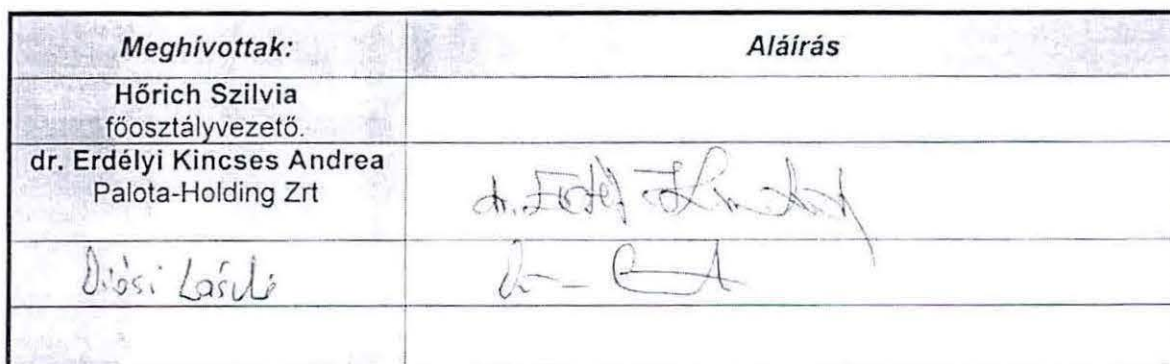 Meghívottak: Aláírás
Hőrich Szilvia
főosztályvezető.
dr. Erdélyi Kincses Andrea
Palota-Holding Zrt
dr. Erdélyi
Diósi László